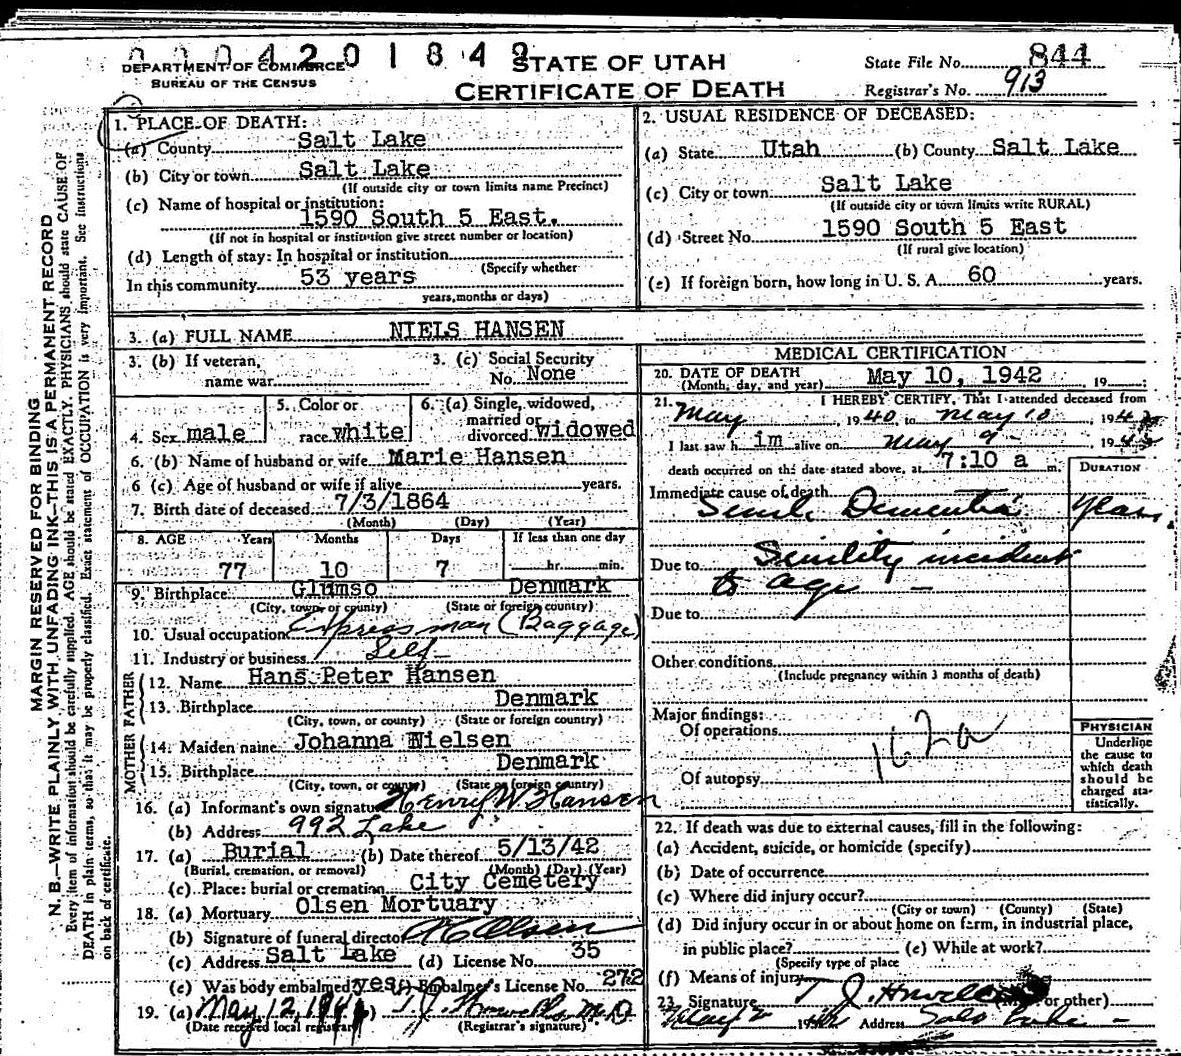 0004201849
DEPARTMENT OF COMMERCE
BUREAU OF THE CENSUS
STATE OF UTAH
CERTIFICATE OF DEATH
State File No. 844
Registrar's No. 913
MARGIN RESERVED FOR BINDING
N. B.—WRITE PLAINLY WITH UNFADING INK—THIS IS A PERMANENT RECORD
Every item of information should be carefully supplied. AGE should be stated EXACTLY. PHYSICIANS should state CAUSE OF
DEATH in plain terms, so that it may be properly classified. Exact statement of OCCUPATION is very important. See instructions
on back of certificate.
1. PLACE OF DEATH:
(a) County Salt Lake
(b) City or town Salt Lake
(If outside city or town limits name Precinct)
(c) Name of hospital or institution:
1590 South 5 East.
(If not in hospital or institution give street number or location)
(d) Length of stay: In hospital or institution
(Specify whether
In this community 53 years
years, months or days)
2. USUAL RESIDENCE OF DECEASED:
(a) State Utah (b) County Salt Lake
(c) City or town Salt Lake
(If outside city or town limits write RURAL)
(d) Street No. 1590 South 5 East
(If rural give location)
(e) If foreign born, how long in U. S. A. 60 years.
3. (a) FULL NAME NIELS HANSEN
3. (b) If veteran, name war
3. (c) Social Security No. None
4. Sex male
5. Color or race white
6. (a) Single, widowed, married or divorced widowed
6. (b) Name of husband or wife Marie Hansen
6 (c) Age of husband or wife if alive years.
7. Birth date of deceased 7/3/1864
(Month) (Day) (Year)
8. AGE Years Months Days If less than one day
77 10 7 hr. min.
9. Birthplace Glumso Denmark
(City, town, or county) (State or foreign country)
10. Usual occupation Expressman (Baggage)
11. Industry or business Self
FATHER
12. Name Hans Peter Hansen
13. Birthplace Denmark
(City, town, or county) (State or foreign country)
MOTHER
14. Maiden name Johanna Nielsen
15. Birthplace Denmark
(City, town, or county) (State or foreign country)
16. (a) Informant's own signature Henry W. Hansen
(b) Address 992 Lake
17. (a) Burial (b) Date thereof 5/13/42
(Burial, cremation, or removal) (Month) (Day) (Year)
(c) Place: burial or cremation City Cemetery
18. (a) Mortuary Olsen Mortuary
(b) Signature of funeral director Olsen
(c) Address Salt Lake (d) License No. 35
(e) Was body embalmed? yes Embalmer's License No. 272
19. (a) May 12, T. J. Howells, M.D.
(Date received local registrar) (Registrar's signature)
MEDICAL CERTIFICATION
20. DATE OF DEATH May 10, 1942, 19
(Month, day, and year)
21. I HEREBY CERTIFY, That I attended deceased from
May 1940 to May 10, 1942
I last saw him alive on May 9 - 1942
death occurred on the date stated above, at 7:10 a m.
DURATION
Immediate cause of death
Senile Dementia Years
Due to Senility incident
to age —
Due to
Other conditions
(Include pregnancy within 3 months of death)
Major findings:
Of operations
162a
Of autopsy
PHYSICIAN
Underline
the cause to
which death
should be
charged sta-
tistically.
22. If death was due to external causes, fill in the following:
(a) Accident, suicide, or homicide (specify)
(b) Date of occurrence
(c) Where did injury occur?
(City or town) (County) (State)
(d) Did injury occur in or about home on farm, in industrial place,
in public place? (e) While at work?
(Specify type of place
(f) Means of injury
23. Signature T. J. Howells or other)
May 194 Address Salt Lake -